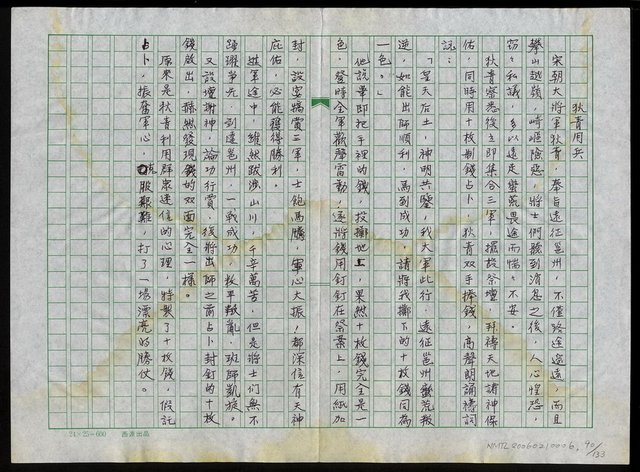 狄青用兵
宋朝大將軍狄青，奉旨遠征邕州，不僅路途遙遠，而且
攀山越嶺，崎嶇險惡，將士們聽到消息之後，人心惶恐，
竊竊私議，多以遠走蠻荒畏途而惴惴不安。
狄青察悉後立即集合三軍，擺設祭壇，拜禱天地諸神保
佑，同時用十枚制錢占卜，狄青双手捧錢，高聲朗誦禱詞
說：
「皇天后土，神明共鑒，我大軍此行，遠征邕州蠻荒叛
逆，如能出師順利，馬到成功，請將我擲下的十枚錢同為
一色。」
他說畢即把手裡的錢，投擲地上，果然十枚錢完全是一
色，登時全軍歡聲雷動，遂將錢用釘釘在祭案上，用紙加
封，設宴犒賞三軍，士飽馬騰，軍心大振！都深信有天神
庇佑，必能獲得勝利。
進軍途中，雖然跋涉山川，千辛萬苦，但是將士們無不
踴躍爭先，到達邕州，一戰成功，救平叛亂，班師凱旋。
又設壇謝神，論功行賞，後將出師之前占卜封釘的十枚
錢啟出，赫然發現錢的双面完全一樣。
原來是狄青利用群眾迷信的心理，特製了十枚錢，假託
占卜，振奮軍心，克服艱難，打了一場漂亮的勝仗。
24×25=600
NMTL20060210006, 90/133